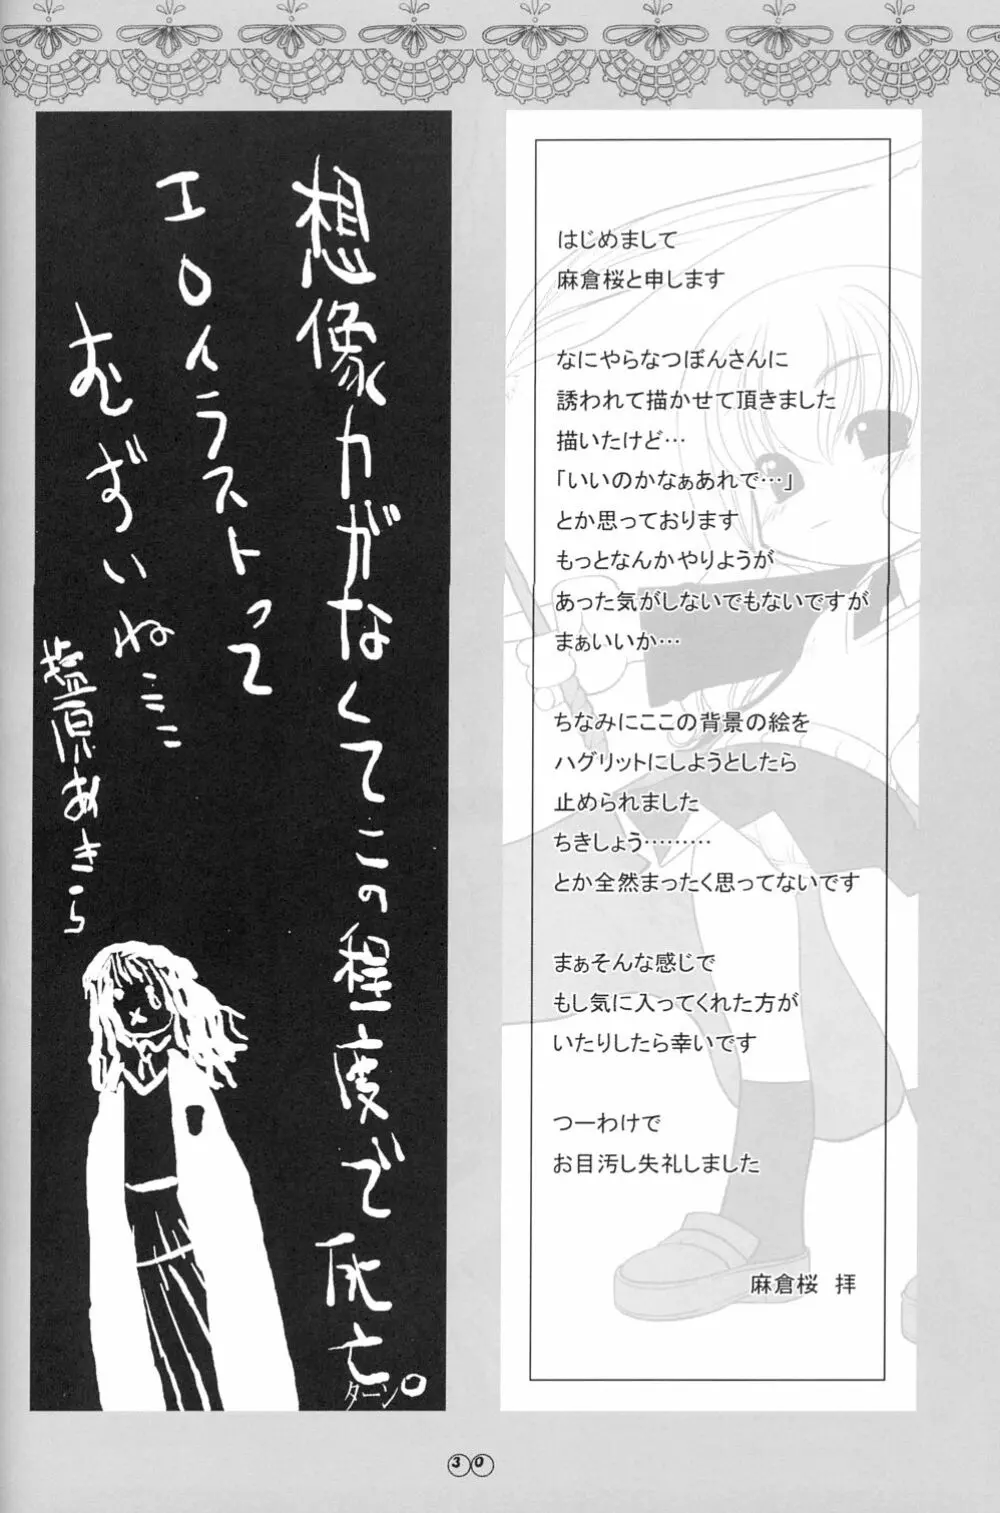 はじめまして
麻倉桜と申します
なにやらなつぼんさんに
誘われて描かせて頂きました
描いたけど…
「いいのかなぁあれで…」
とか思っております
もっとなんかやりようが
あった気がしないでもないですが
まぁいいか…
ちなみにここの背景の絵を
ハグリットにしようとしたら
止められました
ちきしょう………
とか全然まったく思ってないです
まぁそんな感じで
もし気に入ってくれた方が
いたりしたら幸いです
つーわけで
お目汚し失礼しました
麻倉桜　拝
想像力がなくてこの程度で死亡。
ターン
エロイラストって
むずいね
塩原あきら
30